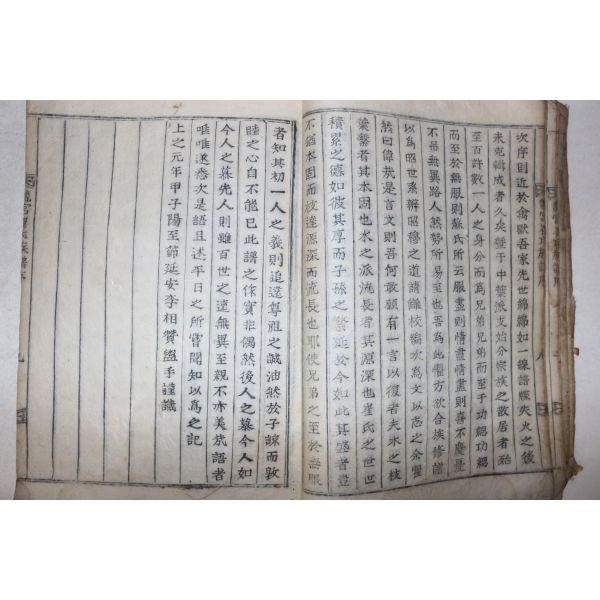 次序則近於禽獸吾家先世綿綿如一線譜牒失火之後
未克輯成者久矣經于中葉派支始分宗族之散居者殆
至百許數一人之身分而為兄弟兄弟而至于功緦功緦
而至於無服則蘇氏所云服盡則情盡情盡則喜不慶憂
不吊無異路人然勢所易至也吾為此懼方欲合族修譜
以為昭世系辨昭穆之道請錄校編次為文以志之余懼
然曰偉哉是言文則吾何敢顧有一言以復者夫木之枝
葉繁者其本固也水之派流長者其源深也崔氏之世世
積累之德如彼其厚而子孫之繁延於今如此其盛者豈
不猶本固而枝達源深而流長也耶使兄弟之至於無服
者知其初一人之義則追遠尊祖之誠油然於子諒而敦
睦之心自不能已此譜之作實非偶然後人之慕今人如
今人之慕先人則雖百世之遠無異至親不亦美哉譜者
唯唯遂悉次是語且述平日之所嘗聞知以為之記
上之元年甲子陽至節延安李相贊盥手謹識